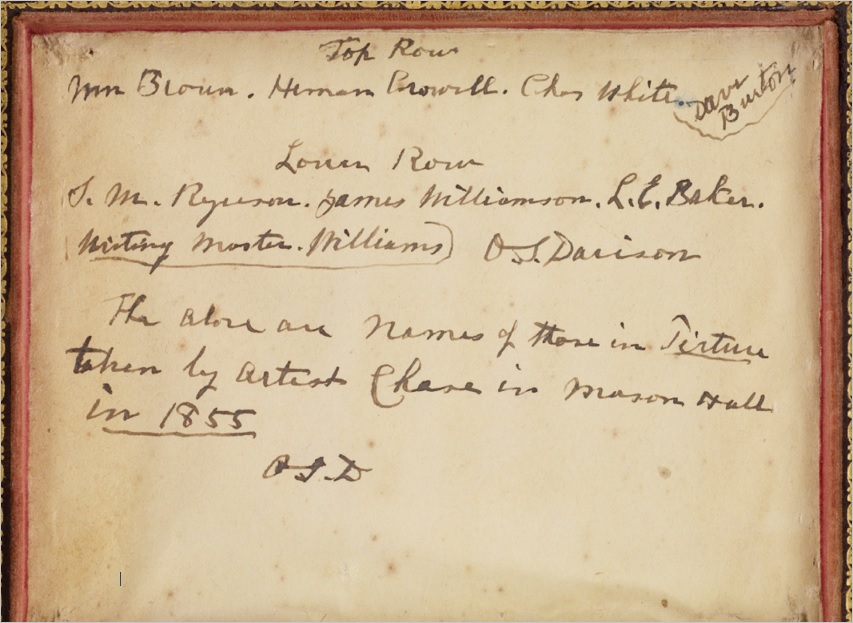 Top Row
Wm Brown. Heman Crowell. Chas White. Dave
Burton
Lower Row
S. M. Ryerson. James Williamson. L. E. Baker.
(Writing Master. Williams) O S. Davison
The above are names of those in Picture
taken by artist Chase in Mason Hall
in 1855
O S. D